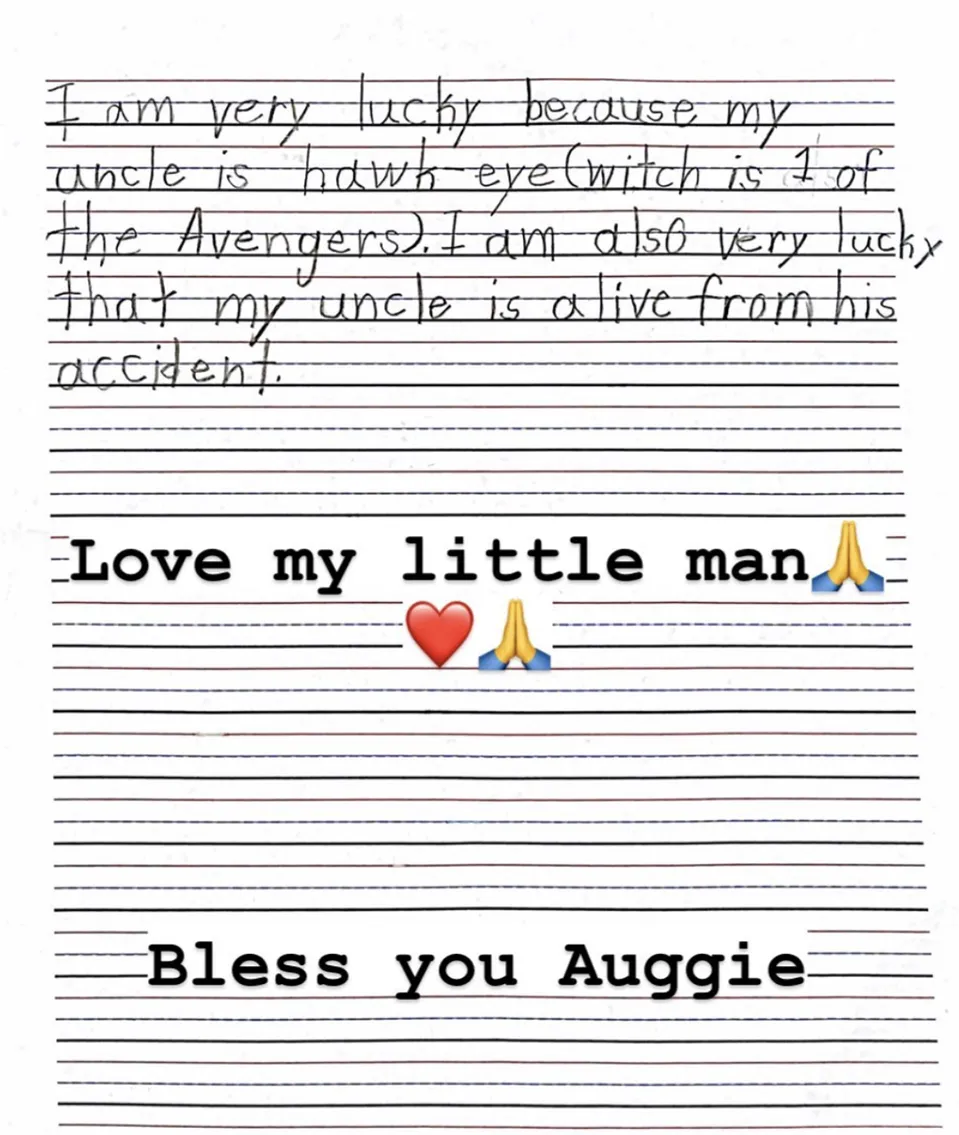 I am very lucky because my
uncle is hawk-eye(witch is 1 of
the Avengers). I am also very lucky
that my uncle is alive from his
accident.
Love my little man🙏
❤️🙏
Bless you Auggie